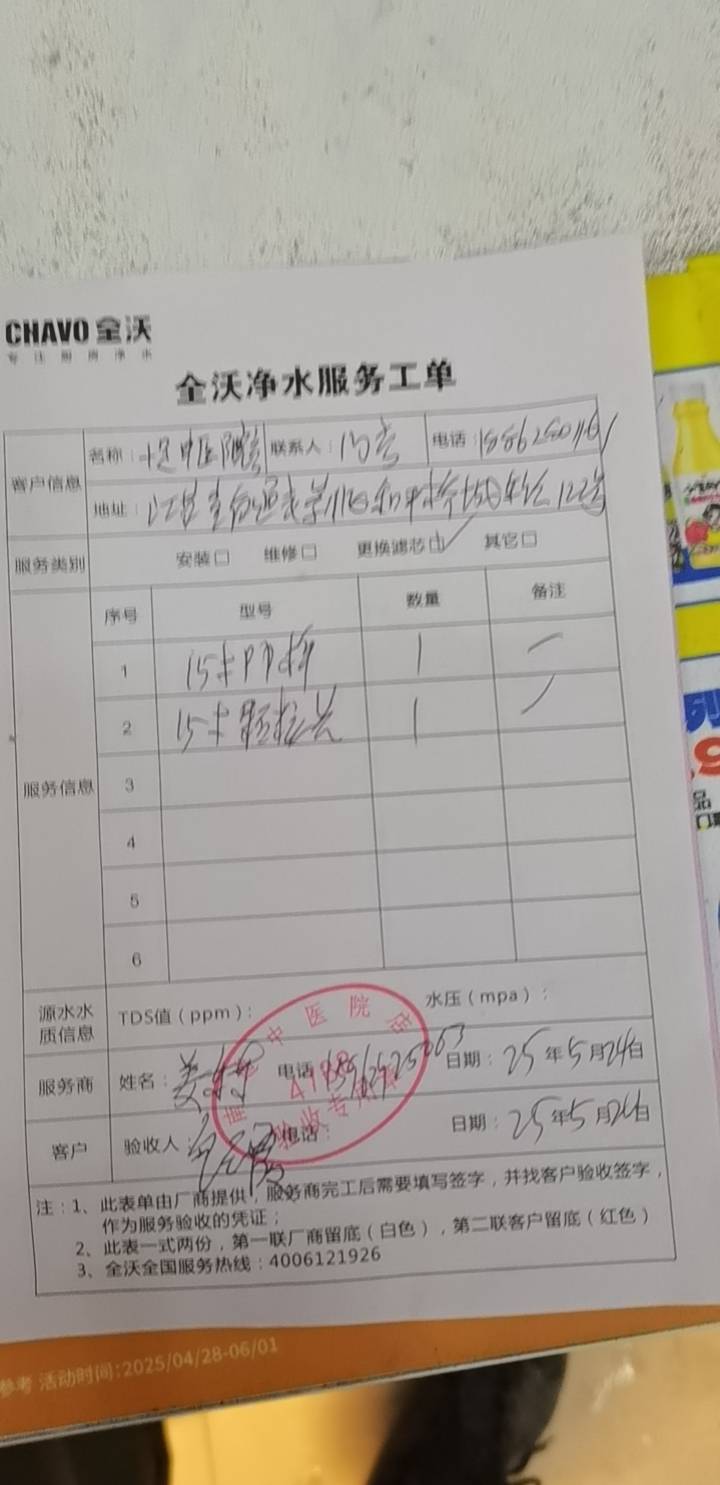 CHAVO 全沃
专注厨房净水
全沃净水服务工单
客户信息
名称：中医院店 联系人： 电话：
地址：江苏省南通 122号
服务类别 安装□ 维修□ 更换滤芯☑ 其它□
服务信息
序号 型号 数量 备注
1 15寸PP棉 1 一
2 15寸颗粒炭 1 一
3
4
5
6
源水水质信息
TDS值（ppm）： 水压（mpa）：
服务商 姓名： 电话 日期：25年5月24日
客户 验收人： 电话： 日期：25年5月24日
中医院店
验收专用章
注：1、此表单由厂商提供，服务商完工后需要填写签字，并找客户验收签字，
作为服务验收的凭证；
2、此表一式两份，第一联厂商留底（白色），第二联客户留底（红色）
3、全沃全国服务热线：4006121926
参考 活动时间:2025/04/28-06/01